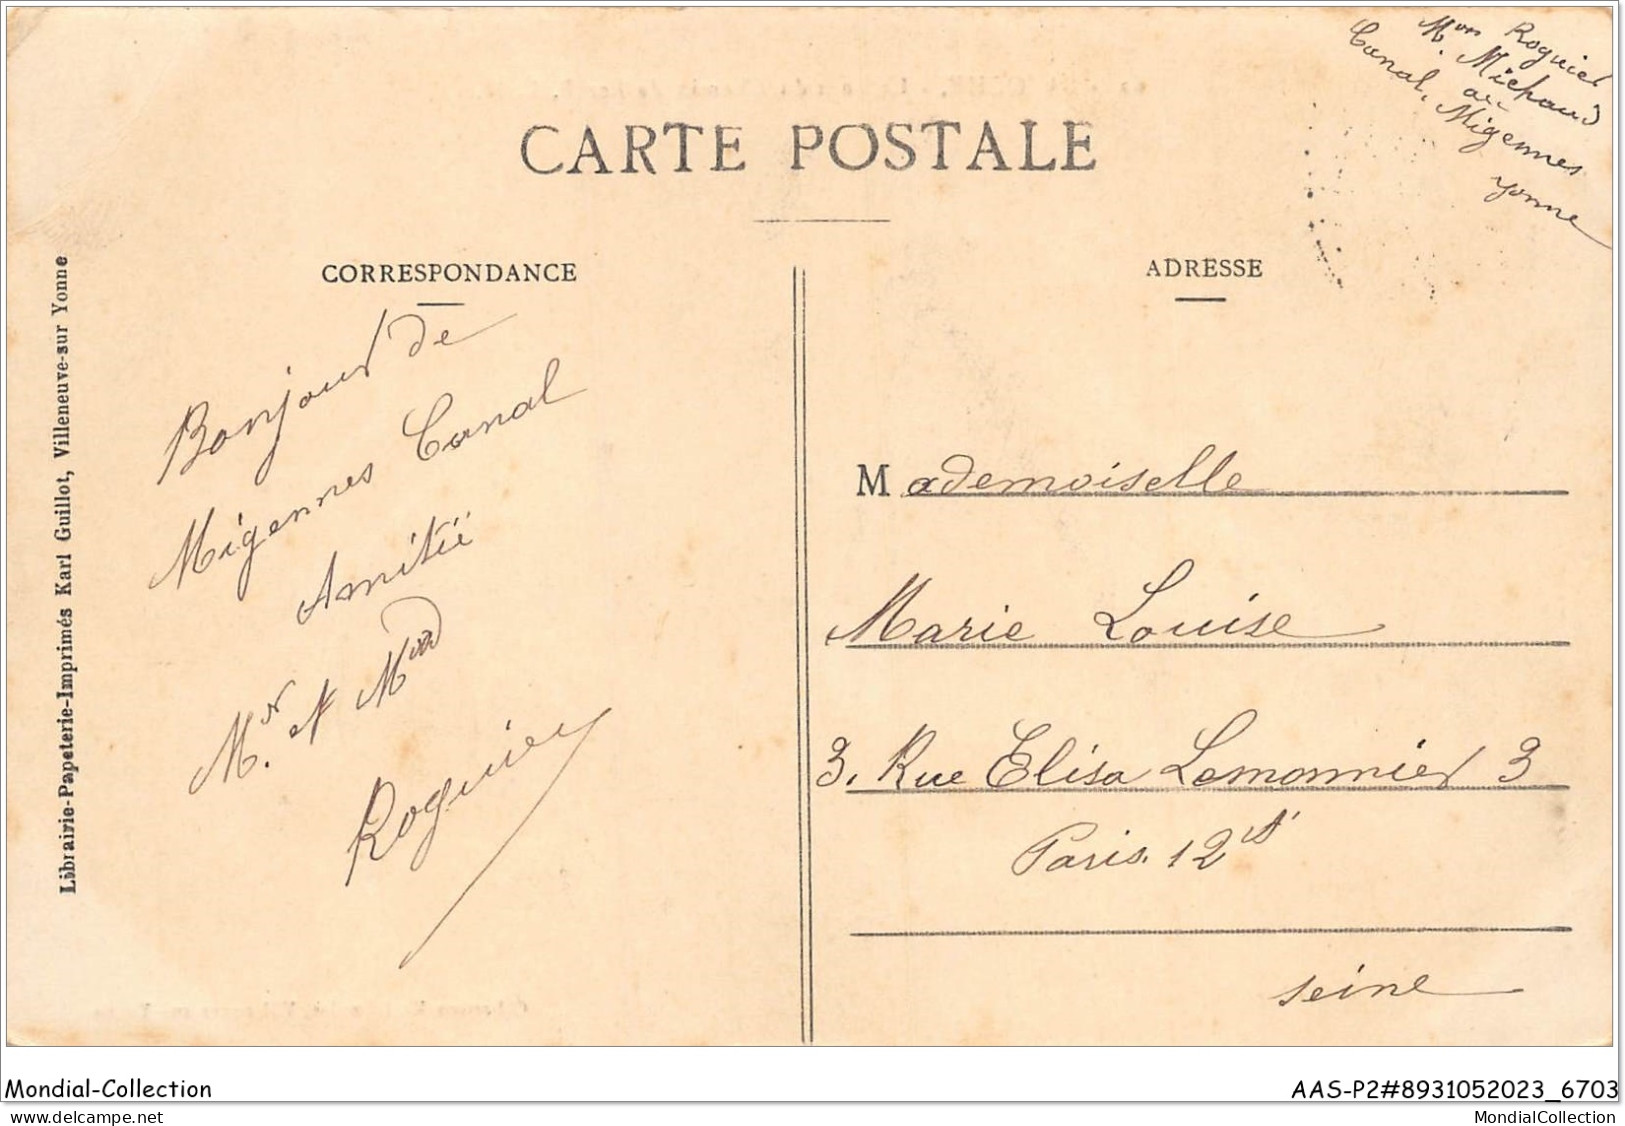 Mon Roguier
M. Michaud
au
Canal, Migennes
Yonne
CARTE POSTALE
CORRESPONDANCE
ADRESSE
Bonjour de
Migennes Canal
Amitié
Mr. et Mad
Roguier
Mademoiselle
Marie Louise
3, Rue Elisa Lemonnier 3
Paris. 12
seine
Librairie-Papeterie-Imprimés Karl Guillot, Villeneuve-sur Yonne
Mondial-Collection
AAS-P2#8931052023_6703
MondialCollection.fr
MondialCollection